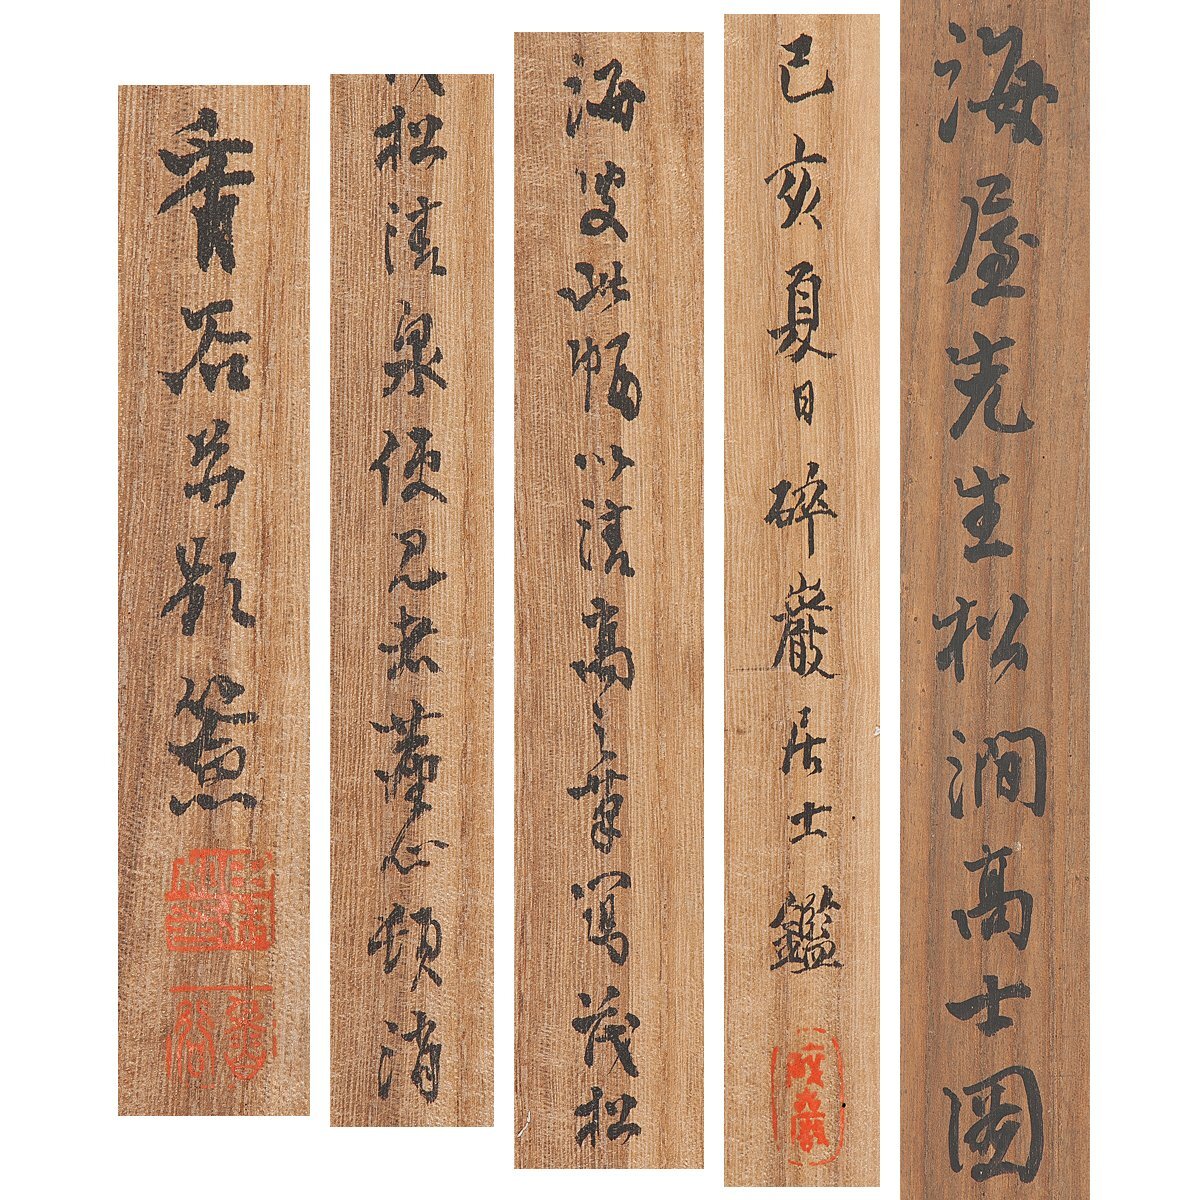 海屋先生松澗高士圖
己亥夏日碎巖居士鑑
海叟此幅以清高之筆寫茂松
茂松清泉使見者塵心頓消
香石𠮷題簽